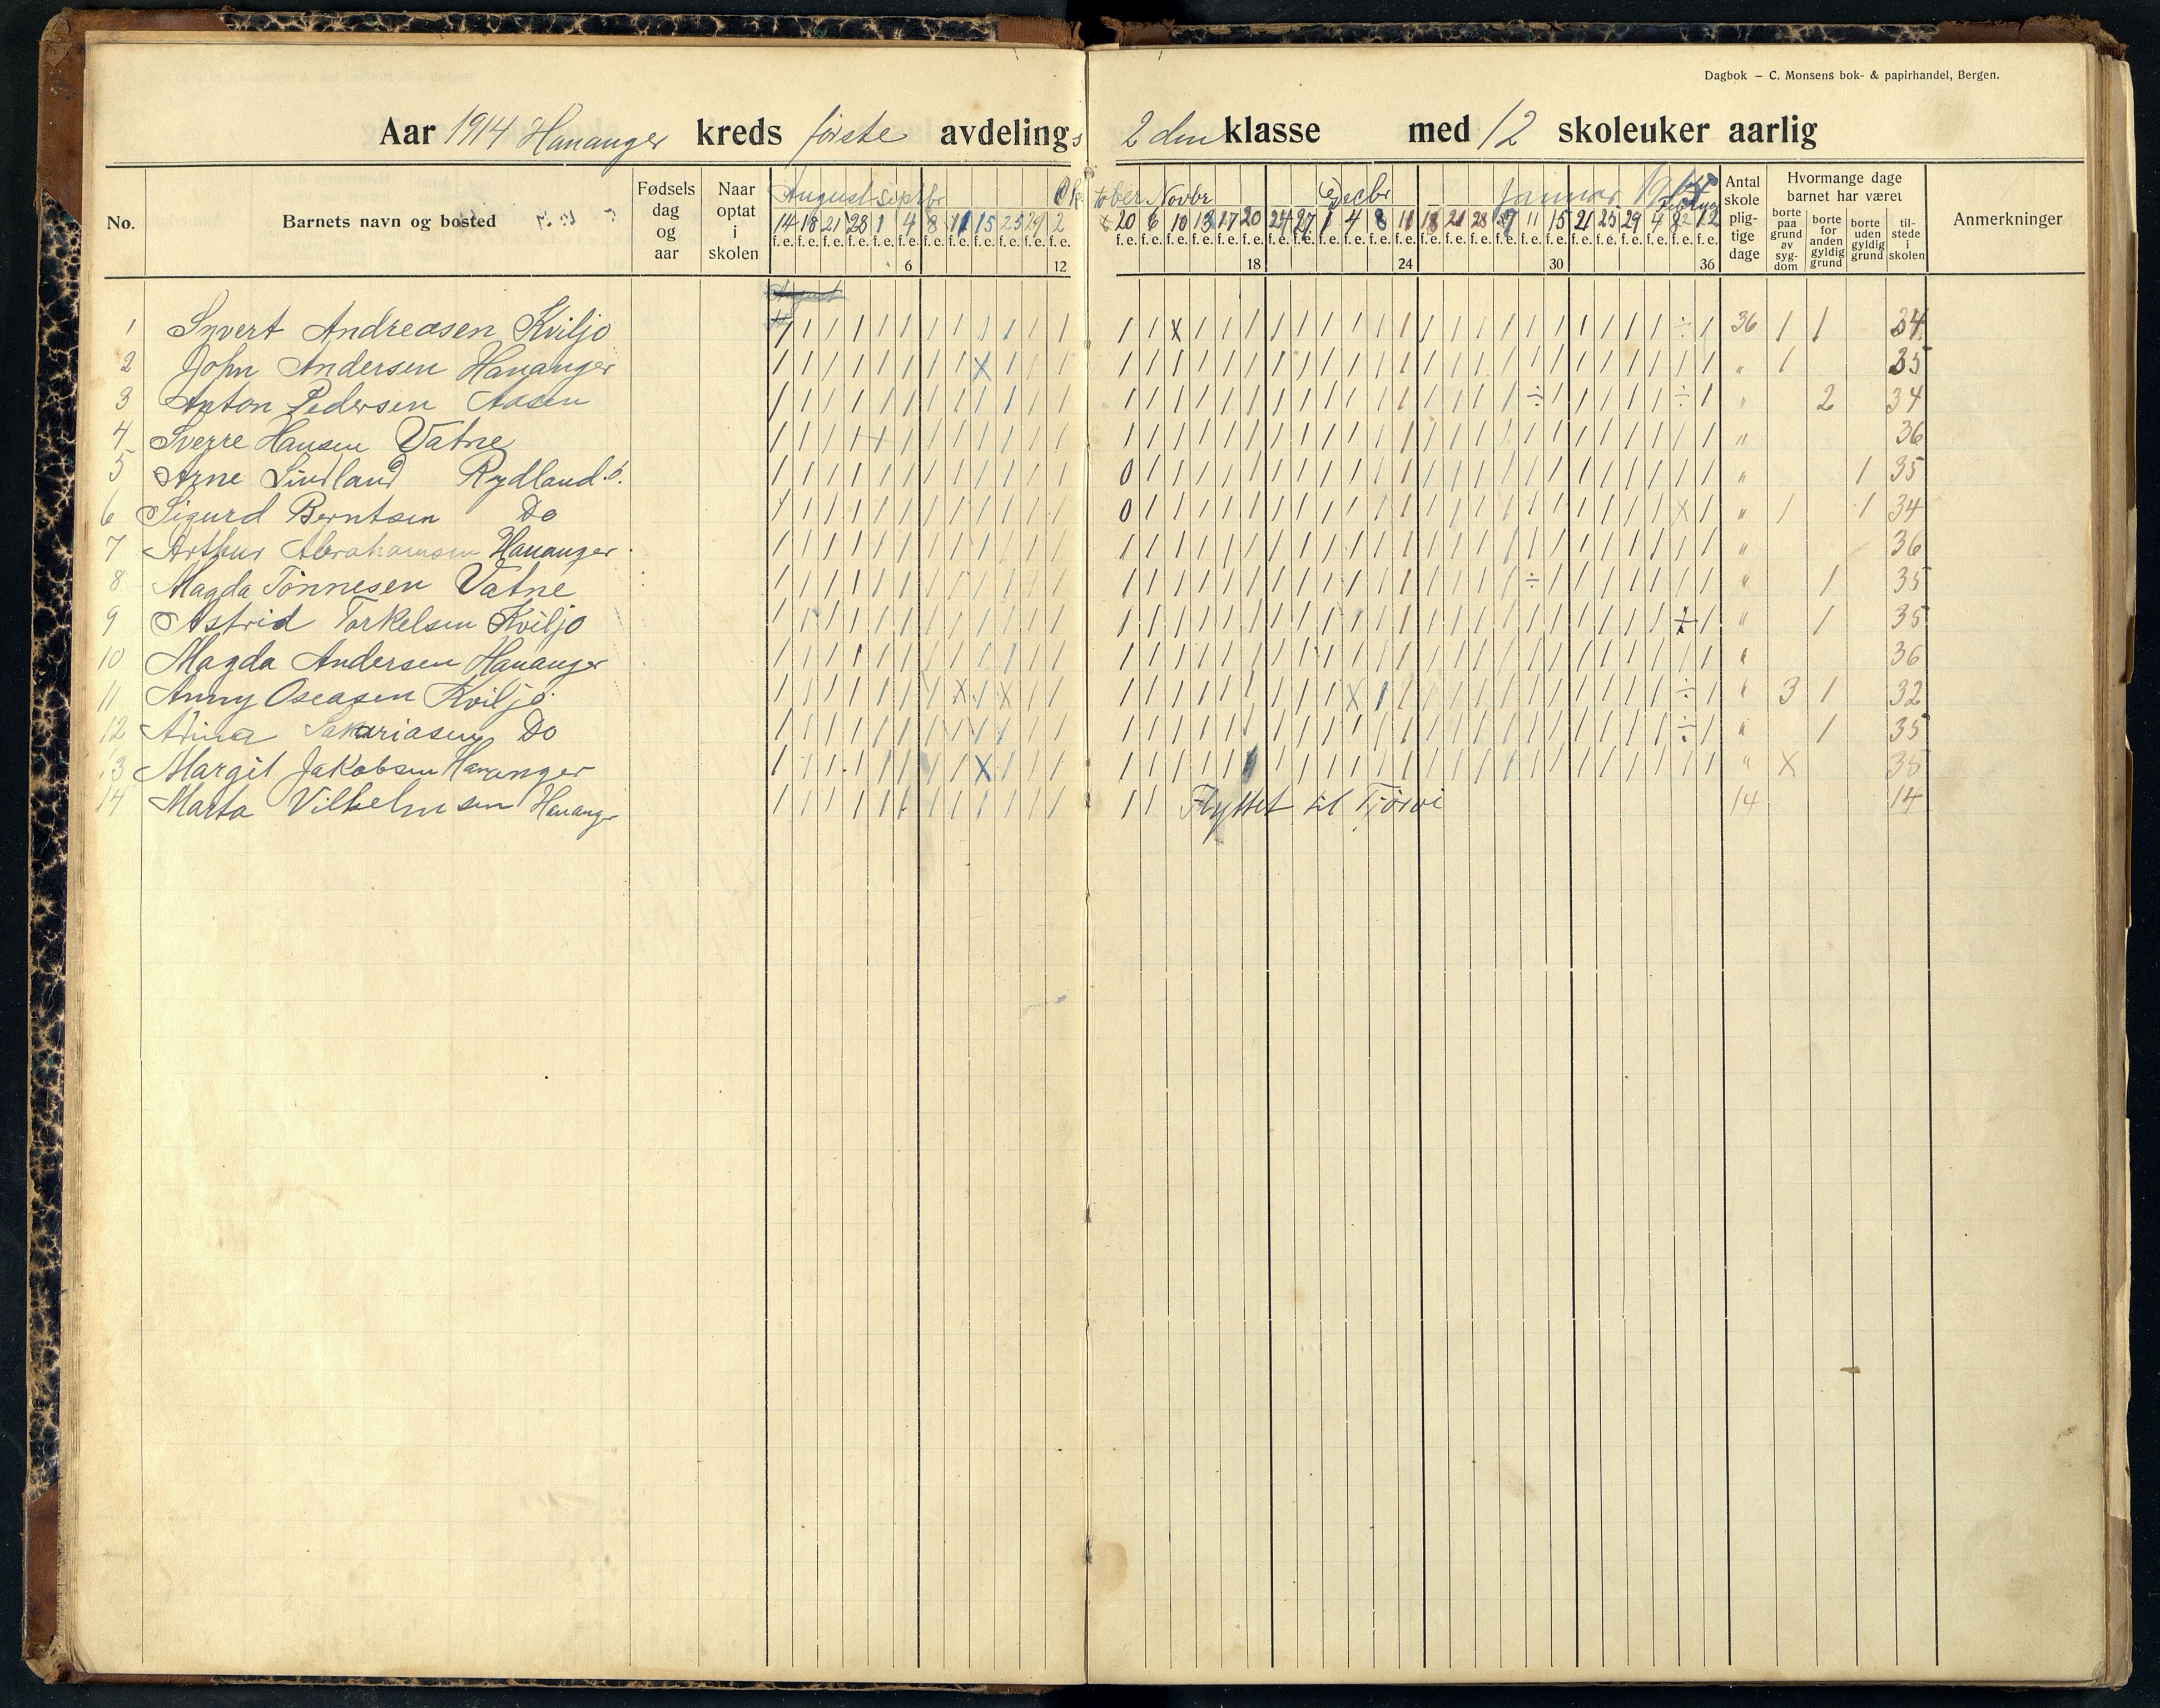 Dagbok – C. Monsens bok- & papirhandel, Bergen.
Aar 1914 Hananger kreds første avdelings 2den klasse med 12 skoleuker aarlig
No.
Barnets navn og bosted
Fødsels dag og aar
Naar optat i skolen
August Septbr Oktober Novbr Decbr Januar 1915
14 18 21 28 1 4 8 11 15 25 29 2 20 6 10 13 17 20 24 27 1 4 8 11 18 21 28 7 11 15 21 25 29 4 8 12
f.e. f.e. f.e. f.e. f.e. f.e. f.e. f.e. f.e. f.e. f.e. f.e. f.e. f.e. f.e. f.e. f.e. f.e. f.e. f.e. f.e. f.e. f.e. f.e. f.e. f.e. f.e. f.e. f.e. f.e. f.e. f.e. f.e. f.e. f.e. f.e.
6 12 18 24 30 36
Antal skole plig- tige dage
Hvormange dage barnet har været
borte paa grund av syg- dom
borte for anden gyldig grund
borte uden gyldig grund
til- stede i skolen
Anmerkninger
August
1 Syvert Andreasen Kviljo 36 1 1 34
2 John Andersen Hananger " 1 35
3 Anton Pedersen Aasen " 2 34
4 Sverre Hansen Vatne " 36
5 Arne Sindland Rydland.s. " 1 35
6 Sigurd Berntsen Do " 1 1 34
7 Arthur Abrahamsen Hananger " 36
8 Magda Tønnesen Vatne " 1 35
9 Astrid Torkelsen Kviljo " 1 35
10 Magda Andersen Hananger " 36
11 Anny Oseasen Kviljo " 3 1 32
12 Alma Sakariasen Do " 1 35
13 Margit Jakobsen Hananger " X 35
14 Marta Vilhelmsen Hananger Flyttet til Tjörve 14 14